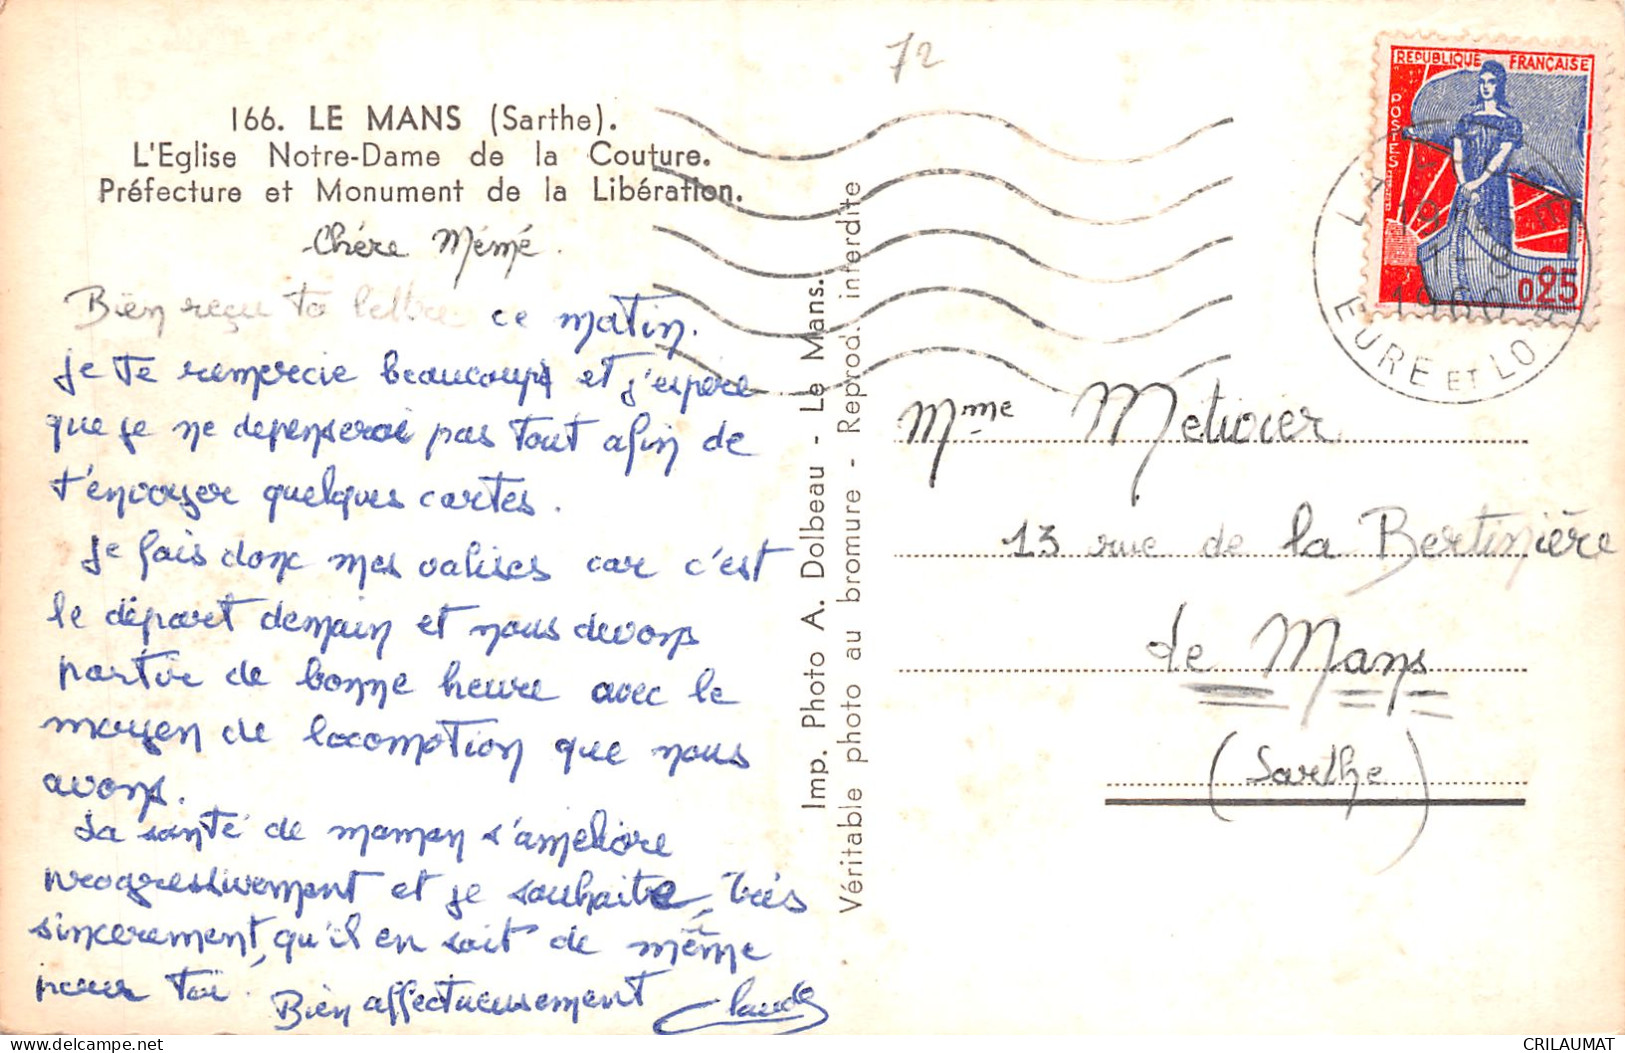 72
166. LE MANS (Sarthe).
L'Eglise Notre-Dame de la Couture.
Préfecture et Monument de la Libération.
Chére Mémé.
Bien reçu ta lettre ce matin.
Je te remercie beaucoup et j'espère
que je ne depenserai pas tout afin de
t'envoyer quelques cartes.
Je fais donc mes valises car c'est
le départ demain et nous devons
partir de bonne heure avec le
moyen de locomotion que nous
avons.
La santé de maman s'améliore
progressivement et je souhaite, très
sincerement, qu'il en soit de même
pour toi. Bien affectueusement Claude
Imp. Photo A. Dolbeau - Le Mans.
Véritable photo au bromure - Reprod. interdite
REPUBLIQUE FRANÇAISE
POSTES
0,25
1960
EURE ET LO
Mme Metivier
13 rue de la Bertinière
Le Mans
(Sarthe)
CRILAUMAT